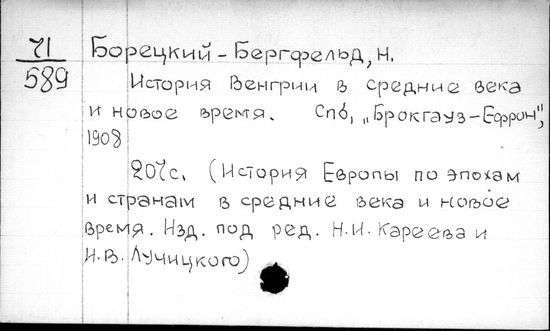 71 Борецкий-Бергфельд, Н.
589 История Венгрии в средние века
и новое время. Спб, „Брокгауз-Ефрон",
1908
207с. (История Европы по эпохам
и странам в средние века и новое
время. Изд. под ред. Н.И. Кареева и
И.В. Лучицкого)